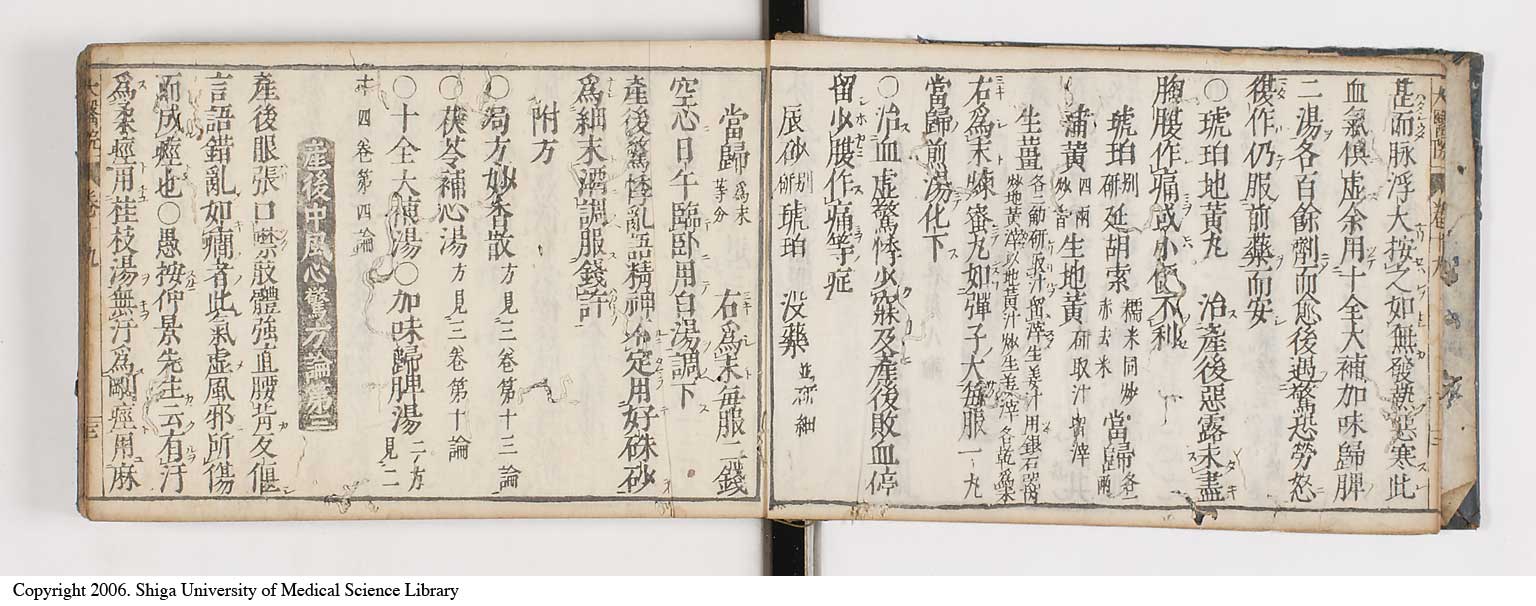 甚而脉浮大按之如無發熱惡寒此
血氣俱虚余用十全大補加味歸脾
二湯各百餘劑而愈後遇驚恐勞怒
復作仍服前藥而安
○琥珀地黃丸　治產後惡露未盡
胸腹作痛或小便不利
琥珀研別　延胡索糯米同炒赤去米　當歸各一兩
蒲黃四兩炒香　生地黃研取汁留滓
生薑各二觔研取汁留滓生姜汁用銀石器內炒地黃滓以地黃汁炒生姜滓各乾爲末
右爲末煉蜜丸如彈子大每服一丸
當歸煎湯化下
○治血虚驚悸少寐及產後敗血停
留少腹作痛等症
辰砂研別　琥珀　没藥並研細
當歸爲末等分　右爲末每服二錢
空心日午臨卧用白湯調下
產後驚悸亂語精神不定用好硃砂
爲細末酒調服錢許
附方
○濁方妙香散方見三卷第十三論
○茯苓補心湯方見三卷第十論
○十全大補湯○加味歸脾湯二方見二
十四卷第四論
產後中風心驚方論第二
產後服張口噤肢體強直腰背反偃
言語錯亂如癇者此氣虚風邪所傷
而成痙也○愚按仲景先生云有汗
爲柔痙用桂枝湯無汗爲剛痙用麻
Copyright 2006. Shiga University of Medical Science Library